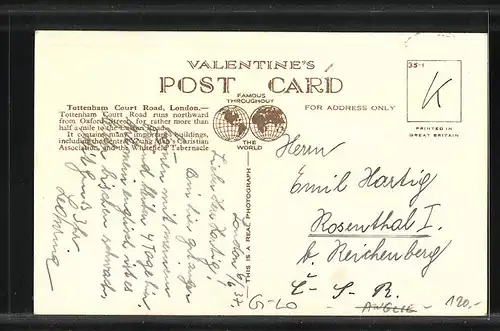 VALENTINE'S
POST CARD
FAMOUS
THROUGHOUT
THE
WORLD
FOR ADDRESS ONLY
35-1
K
PRINTED IN
GREAT BRITAIN
Tottenham Court Road, London.—
Tottenham Court Road runs northward
from Oxford Street, for rather more than
half a mile to the Euston Road.
It contains many important buildings,
including the Central Young Men's Christian
Association, and the Whitefield Tabernacle
THIS IS A REAL PHOTOGRAPH
London 6/6 37.
Lieber Herr Hartig!
Bin hier gefangen
mit meinem
und bleiben 4 Tage in
Herrn
Emil Hartig
Rosenthal I.
b. Reichenberg
Č-S-R.
Gi-LO
ANGLIE
120,-